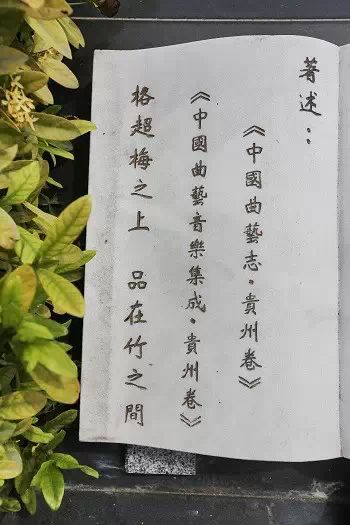 著述：
《中國曲藝志·貴州卷》
《中國曲藝音樂集成·貴州卷》
格超梅之上 品在竹之間